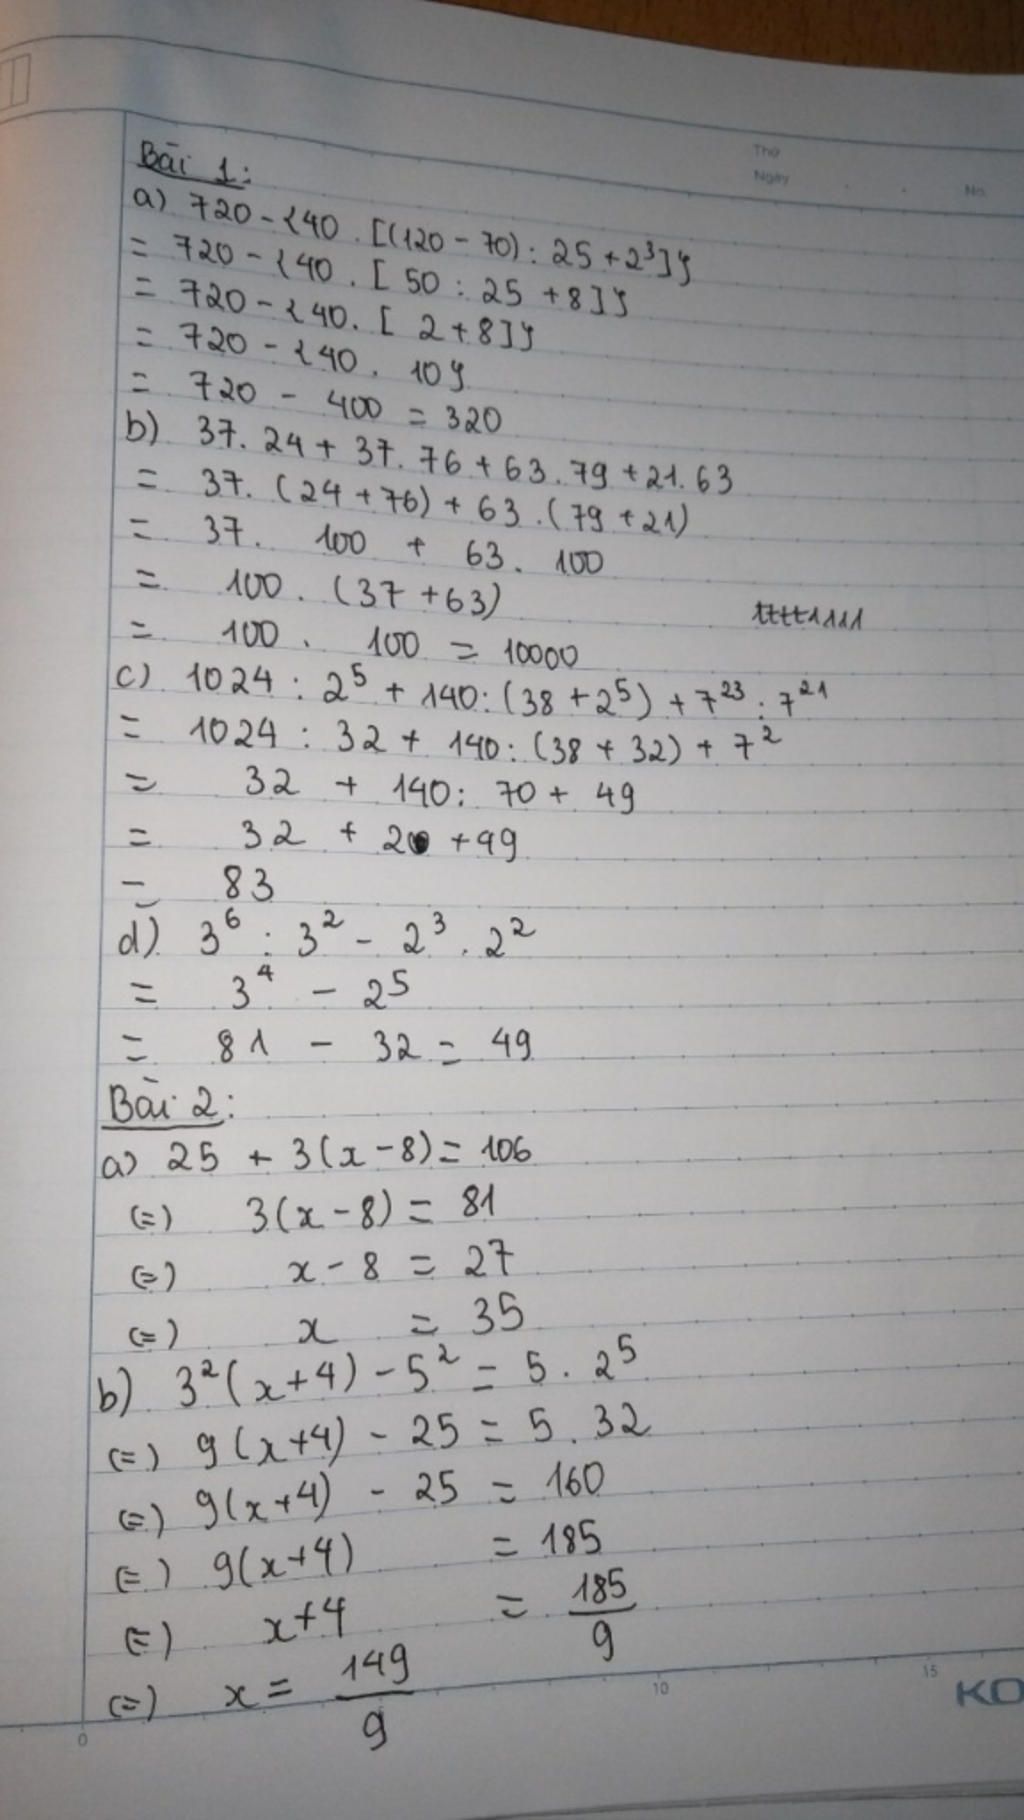 Thứ
Ngày
No.
Bài 1:
a) 720 - {40 . [(120 - 70) : 25 + 2³]}
= 720 - {40 . [ 50 : 25 + 8]}
= 720 - {40. [ 2 + 8]}
= 720 - {40 . 10}
= 720 - 400 = 320
b) 37. 24 + 37. 76 + 63 . 79 + 21. 63
= 37. (24 + 76) + 63 . (79 + 21)
= 37. 100 + 63. 100
= 100 . (37 + 63)
= 100 . 100 = 10000
c) 1024 : 2⁵ + 140 : (38 + 2⁵) + 7²³ : 7²¹
= 1024 : 32 + 140 : (38 + 32) + 7²
= 32 + 140 : 70 + 49
= 32 + 2 + 49
= 83
d) 3⁶ : 3² - 2³ . 2²
= 3⁴ - 2⁵
= 81 - 32 = 49
Bài 2:
a) 25 + 3(x - 8) = 106
(=) 3(x - 8) = 81
(=) x - 8 = 27
(=) x = 35
b) 3²(x + 4) - 5² = 5 . 2⁵
(=) 9(x+4) - 25 = 5. 32
(=) 9(x+4) - 25 = 160
(=) 9(x+4) = 185
(=) x+4 = 185/9
(=) x = 149/9
0 10 15 KO